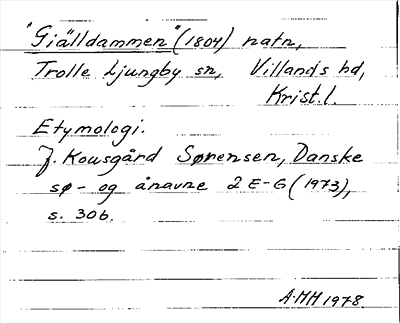 "Giälldammen" (1804) natn,
Trolle Ljungby sn, Villands hd,
Krist.l.
Etymologi.
J. Kousgård Sørensen, Danske
sø- og ånavne 2 E-G (1973),
s. 306.
AMH 1978.